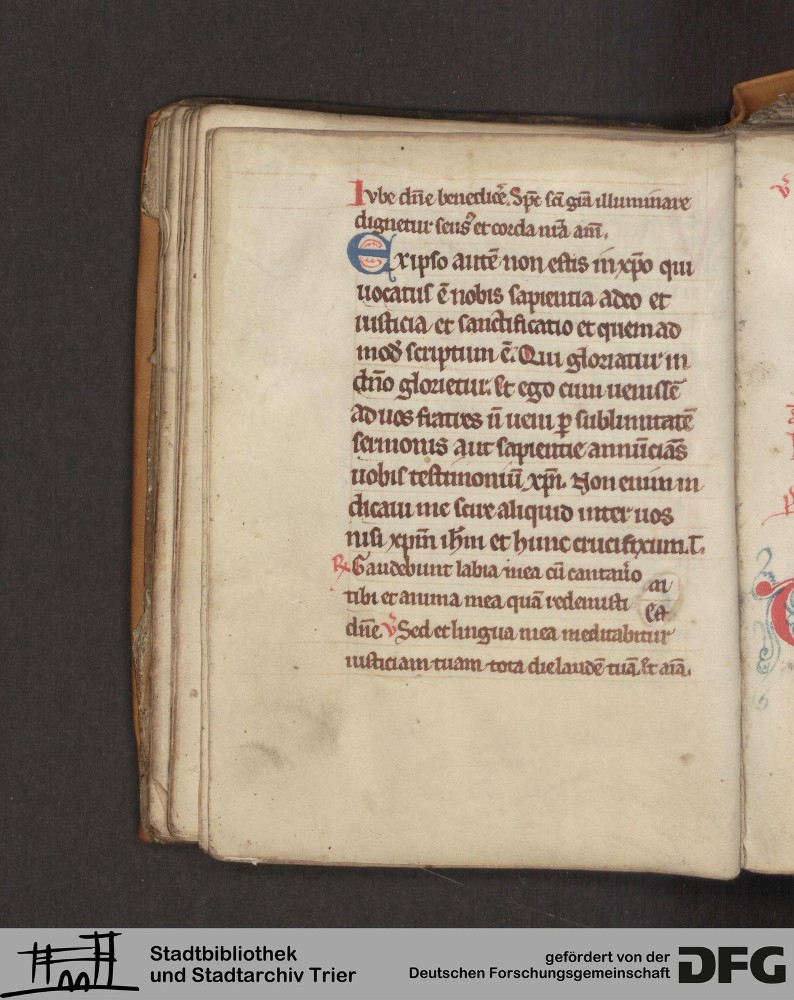 Iube dn̄e benedicẽ. Sp̄c sc̄i gr̄a illuminare
dignetur sensꝰ et corda nr̄a am̄.
Ex ipso autē non estis in xp̄o qui
uocatus ē nobis sapientia adeo et
iusticia et sanctificatio et quemad
mod̄ scriptum ē. Qui gloriatur in
dn̄o glorietur. Et ego cum uenissē
ad uos fratres n̄ ueni ꝑ sublimitatē
sermonis aut sapientie annūciās
uobis testimoniū xp̄i. Non enim in
dicaui me scire aliquid inter uos
nisi xp̄m ih̄m et hunc crucifixum. T.
℟ Gaudebunt labia mea cū cantau̾o
tibi et anima mea quā redemisti
dn̄e. ℣ Sed et lingua mea meditabitur
iusticiam tuam tota die laudē tuā. Et aīa.
Stadtbibliothek
und Stadtarchiv Trier
gefördert von der
Deutschen Forschungsgemeinschaft
DFG